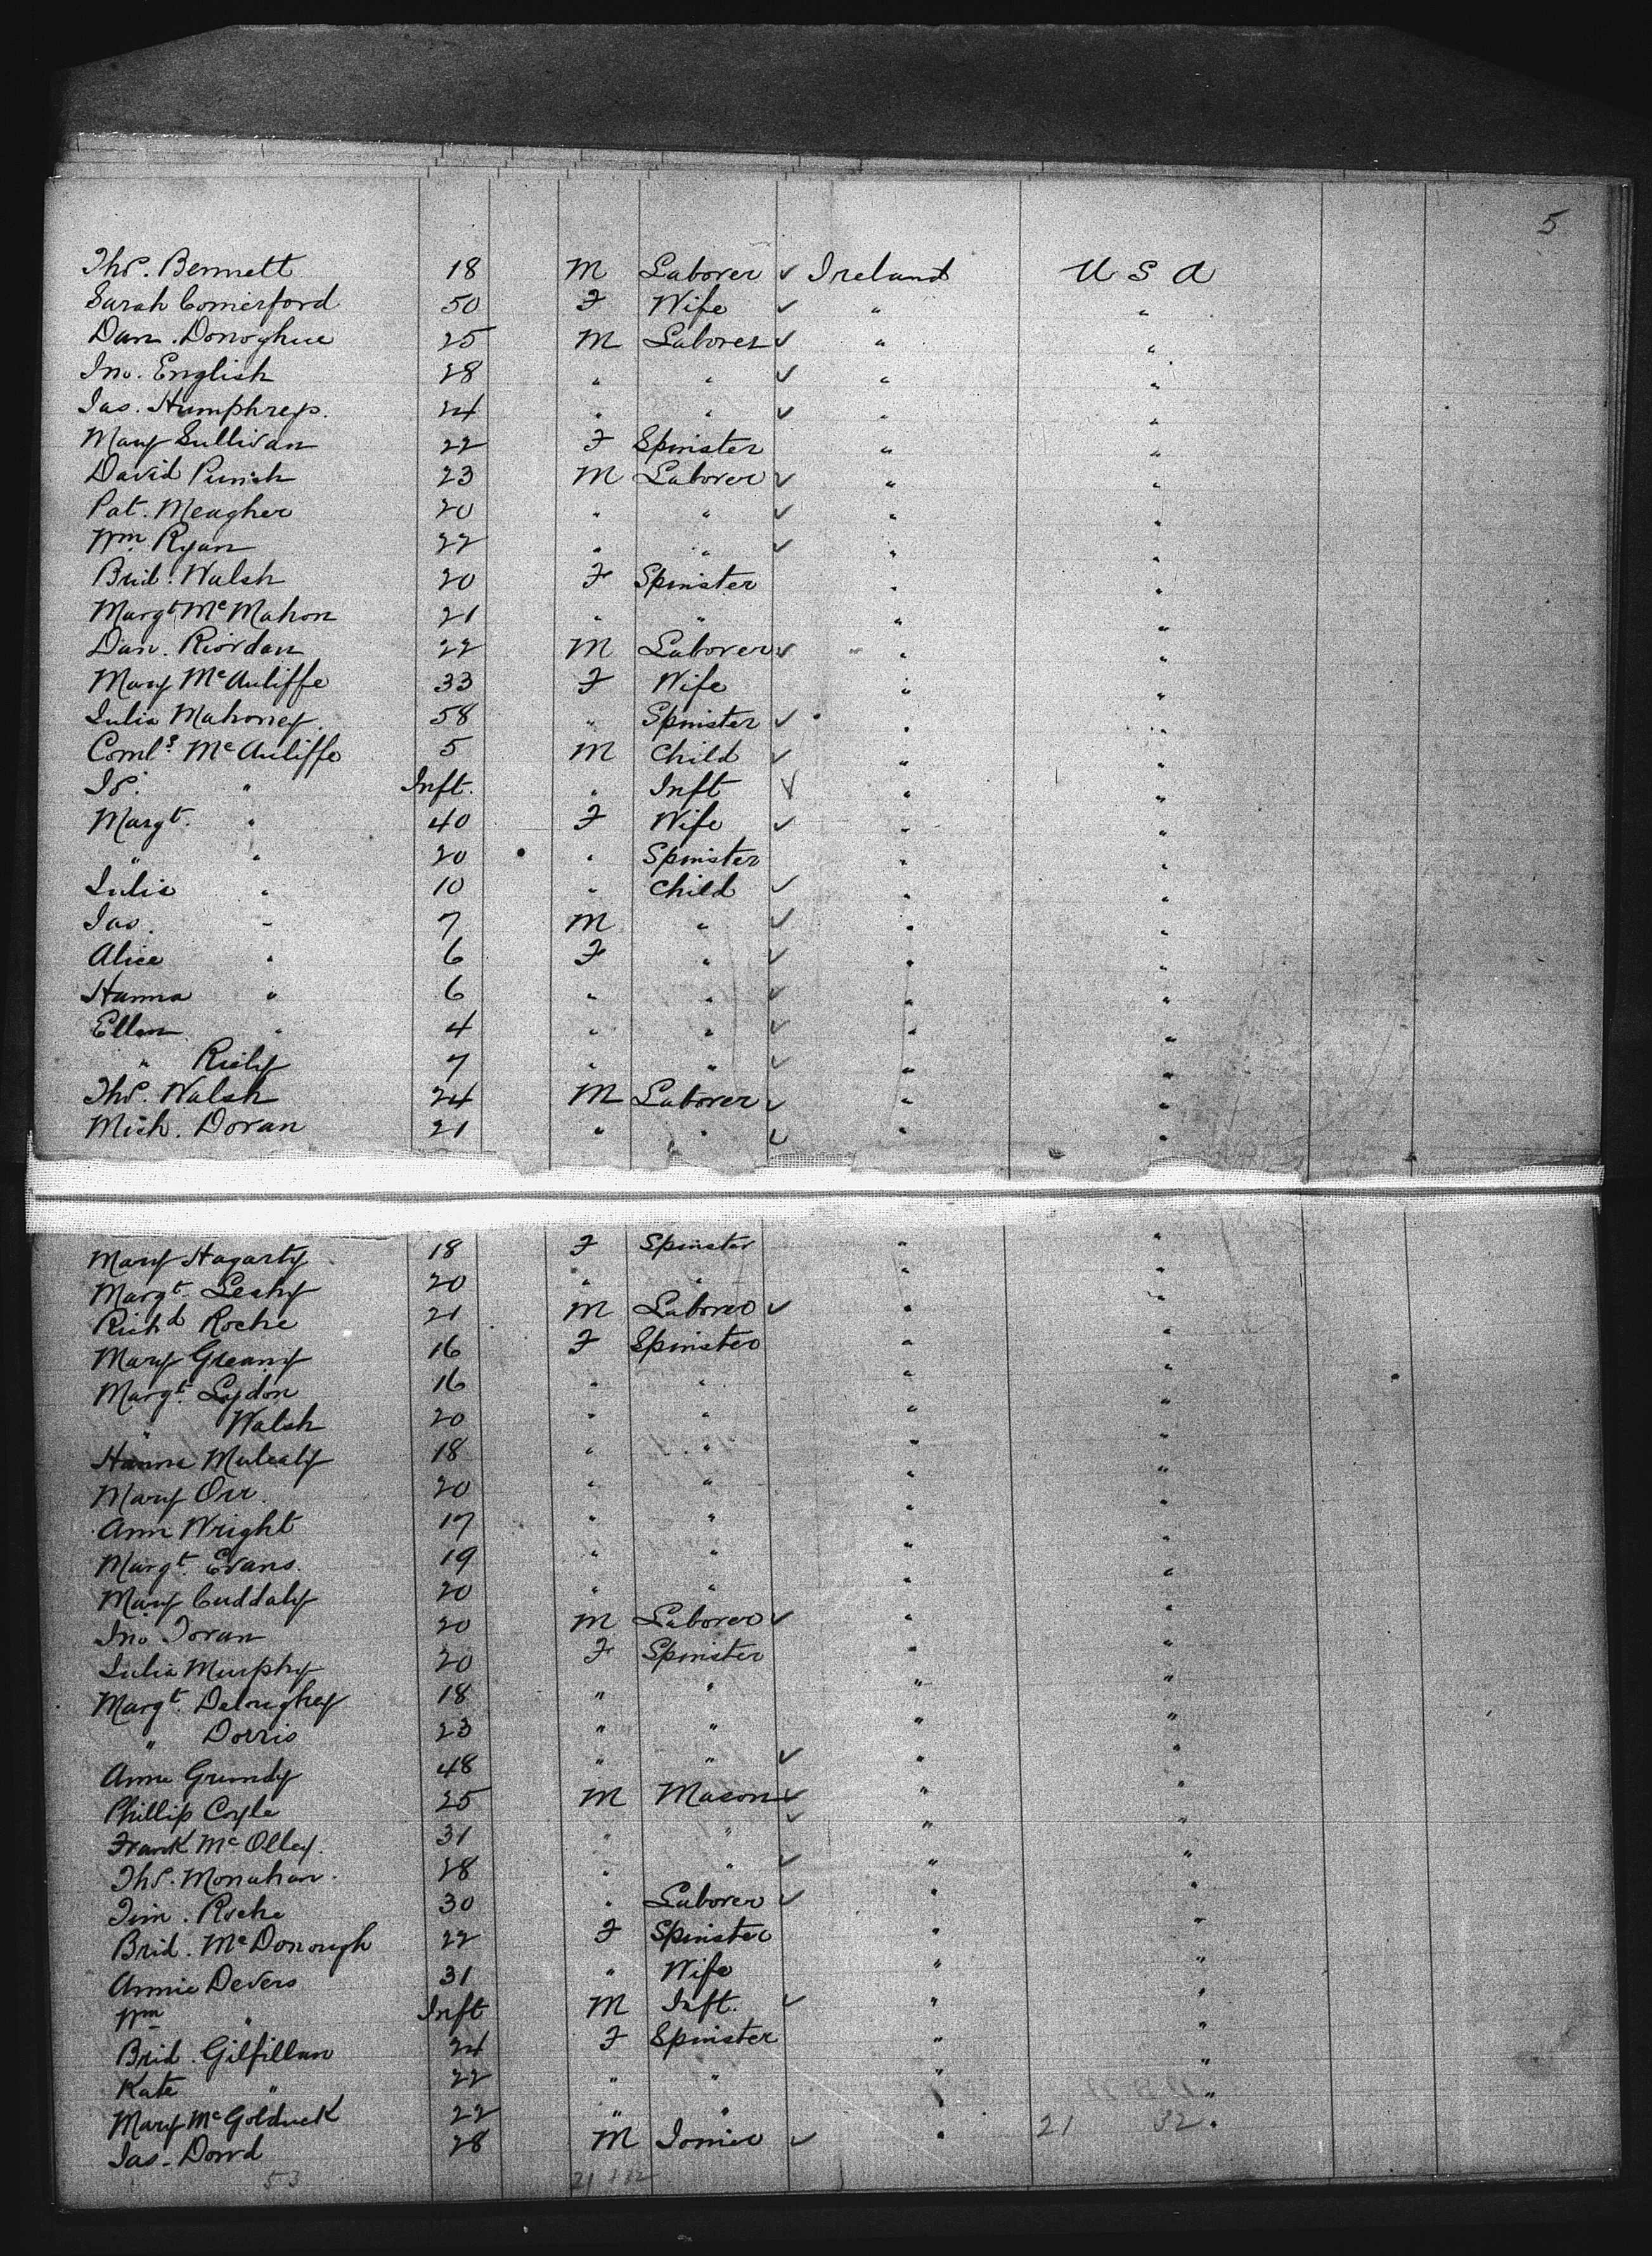 5
Thos. Bennett 18 M Laborer ✓ Ireland U S A
Sarah Comerford 50 F Wife ✓ " "
Dan. Donoghue 25 M Laborer ✓ " "
Jno. English 28 " " ✓ " "
Jas. Humphreys. 24 " " ✓ " "
Mary Sullivan 22 F Spinster " "
David Punch 23 M Laborer ✓ " "
Pat. Meagher 20 " " ✓ " "
Wm. Ryan 22 " " ✓ " "
Brid. Walsh 20 F Spinster " "
Margt. McMahon 21 " " " "
Dan. Riordan 22 M Laborer ✓ " "
Mary McAuliffe 33 F Wife " "
Julia Mahoney 58 " Spinster ✓ " "
Cornls. McAuliffe 5 M Child ✓ " "
" Inft. " Inft ✓ " "
Margt. " 40 F Wife ✓ " "
" " 20 " Spinster " "
Julia " 10 " Child ✓ " "
Jas. " 7 M " ✓ " "
Alice " 6 F " ✓ " "
Hanna " 6 " " ✓ " "
Ellen " 4 " " ✓ " "
" Reily 7 " " ✓ " "
Thos. Walsh 24 M Laborer ✓ " "
Mich. Doran 21 " " ✓ " "
Mary Hagarty 18 F Spinster " "
Margt. Leahy 20 " " " "
Richd Roche 21 M Laborer ✓ " "
Mary Greany 16 F Spinster " "
Margt. Lydon 16 " " " "
" Walsh 20 " " " "
Hanna Mulcahy 18 " " " "
Mary Orr 20 " " " "
Ann Wright 17 " " " "
Margt. Evans. 19 " " " "
Mary Cuddahy 20 " " " "
Jno. 20 M Laborer ✓ " "
Julia Murphy 20 F Spinster " "
Margt. Deloughey 18 " " " "
" Dorris 23 " " " "
Anne Grundy 48 " " ✓ " "
Phillip Coyle 25 M Mason ✓ " "
Frank McOlley. 31 " " ✓ " "
Thos. Monahan. 28 " " ✓ " "
Tim. Roche 30 " Laborer ✓ " "
Brid. McDonough 22 F Spinster " "
Annie Devers 31 " Wife " "
Wm " Inft M Inft. ✓ " "
Brid. Gilfillan 24 F Spinster " "
Kate " 22 " " " "
Mary McGoldrick 22 " " " "
Jas. Dowd 28 M Joiner ✓ " 21 32 "
53 21